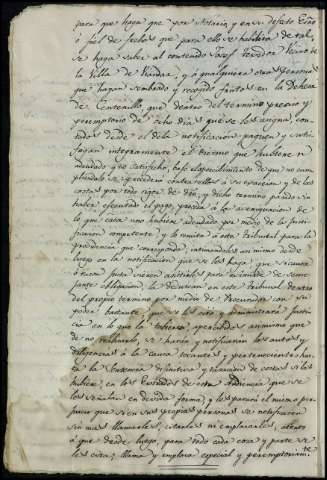 para que haga que por Notario, y en su defecto Esno
ó fiel de fechos que para ello se habilite de tal,
se haga saber al contenido Josef Texedor Vecino de
la Villa de Viandar, y á qualquiera otra persona
que hayan sembrado y recogido frutos en la Dehesa
de Centenillo, que dentro del termino preciso y
peremptorio de ocho dias que se les asigna, con-
tados desde el de la notificacion paguen y satis-
fagan integramente el diezmo que hubiere n
adeudado y no satisfecho, baxo el apercibimiento de que no cum-
pliendolo se procederá contra ellos á su exaccion y de las
costas por todo rigor de dro, y dicho termino pasado sin
haber efectuado el pago, proceda á la averiguacion de
lo que cada uno hubiere adeudado por medio de la justi-
ficacion competente, y lo remita á este tribunal para la
providencia que corresponda, intimandoles asimismo desde
luego en la notificacion que se les haga, que si causa
ó razon justa tienen asistirles para eximirse de seme-
jante obligacion, la deduzcan en este tribunal dentro
del propio termino por medio de Procurador con su
poder bastante, que se les oirá y administrará justi-
cia en lo que la tubieren, apercibidos asimismo que
de no realizarlo, se harán y notificarán los autos y
diligencias á la causa tocantes y pertenecientes has-
ta la Sentencia difinitiva y tasacion de costas si las
hubiere, en los Estrados de esta Audiencia que se
les señalan en decidida forma, y les parará el mismo per-
juicio que si en sus propias personas se notificasen
sin mas llamarles, citarles ni emplazarles, atento
á que desde luego, para todo cada cosa y parte se
les cita, llama y emplaza especial y perentoriamte